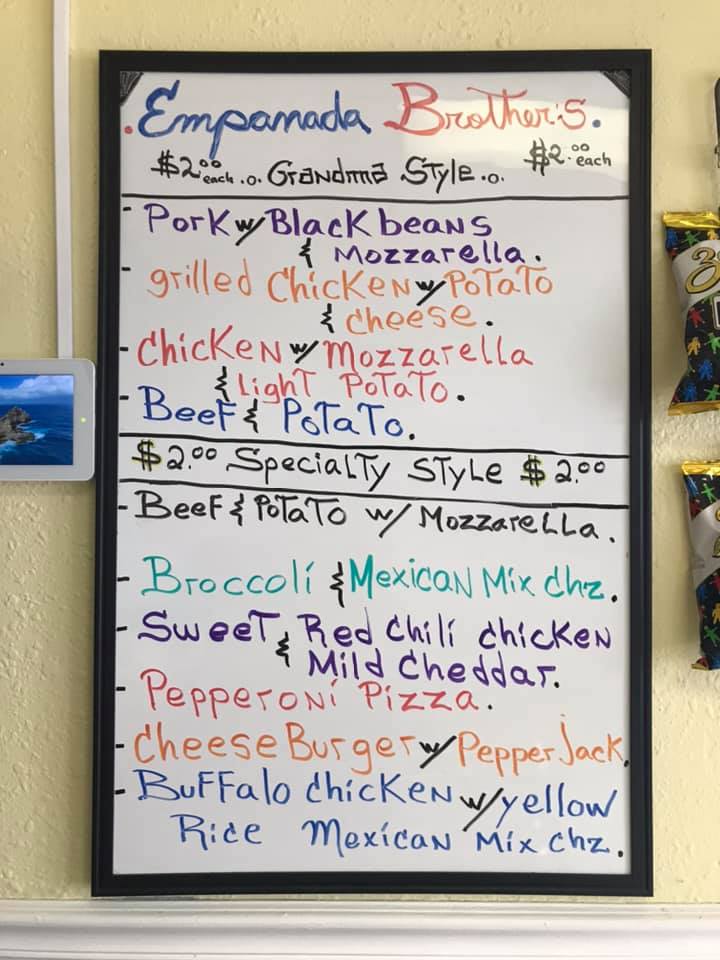 .Empanada Brother's.
$2.00 each .o. Grandma Style .o. $2.00 each
- Pork w/ Black beans
& Mozzarella.
- grilled Chicken w/ Potato
& cheese.
- Chicken w/ Mozzarella
& Light Potato.
- Beef & Potato.
$2.00 Specialty Style $2.00
- Beef & Potato w/ Mozzarella.
- Broccoli & Mexican Mix chz.
- Sweet & Red Chili chicken
Mild Cheddar.
- Pepperoni Pizza.
- Cheese Burger w/ Pepper Jack.
- Buffalo chicken w/ yellow
Rice Mexican Mix chz.